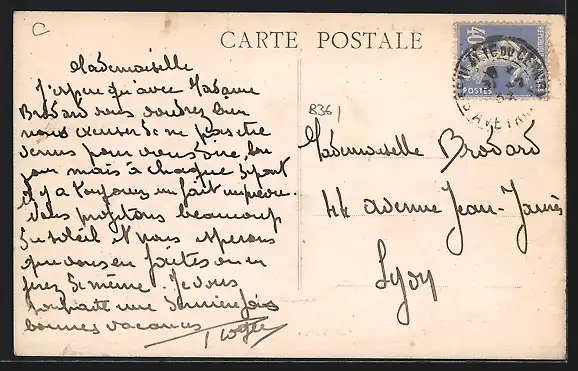 C
CARTE POSTALE
Mademoiselle
J'espère qu'avec Madame
Brodard vous voudrez bien
nous excuser de ne pas être
venus pour vous dire bon
jour mais à chaque départ
il y a toujours un fait imprévu.
Nous profitons beaucoup
du soleil et nous espérons
que vous en faites ou en
ferez de même. Je vous
souhaite une dernière fois
bonnes vacances
B361
Mademoiselle Brodard
44 avenue Jean-Jaurès
Lyon
40
POSTES
AVEYRON